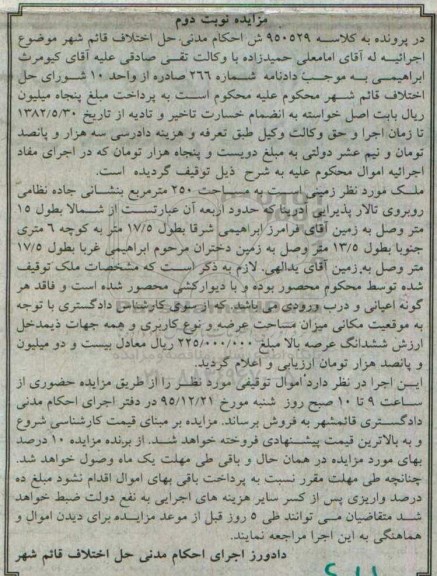 مزایده نوبت دوم
در پرونده به کلاسه ۹۵۰۵۲۹ ش احکام مدنی حل اختلاف قائم شهر موضوع
اجرائیه له آقای امامعلی حمیدزاده با وکالت تقی صادقی علیه آقای کیومرث
ابراهیمی به موجب دادنامه شماره ۲۶۶ صادره از واحد ۱۰ شورای حل
اختلاف قائم شهر محکوم علیه محکوم است به پرداخت مبلغ پنجاه میلیون
ریال بابت اصل خواسته به انضمام خسارت تاخیر و تادیه از تاریخ ۱۳۸۲/۵/۳۰
تا زمان اجرا و حق وکالت وکیل طبق تعرفه و هزینه دادرسی سه هزار و پانصد
تومان و نیم عشر دولتی به مبلغ دویست و پنجاه هزار تومان که در اجرای مفاد
اجرائیه اموال محکوم علیه به شرح ذیل توقیف گردیده است.
ملک مورد نظر زمینی است به مساحت ۲۵۰ مترمربع بنشانی جاده نظامی
روبروی تالار پذیرایی آدرینا که حدود اربعه آن عبارتست از شمالا بطول ۱۵
متر وصل به زمین آقای فرامرز ابراهیمی شرقا بطول ۱۷/۵ متر به کوچه ۶ متری
جنوبا بطول ۱۳/۵ متر وصل به زمین دختران مرحوم ابراهیمی غربا بطول ۱۷/۵
متر وصل به زمین آقای یدالهی. لازم به ذکر است که مشخصات ملک توقیف
شده توسط محکوم محصور بوده و با دیوارکشی محصور شده است و فاقد هر
گونه اعیانی و درب ورودی می باشد که از سوی کارشناس دادگستری با توجه
به موقعیت مکانی میزان مساحت عرصه و نوع کاربری و همه جهات ذیمدخل
ارزش ششدانگ عرصه بالا مبلغ ۲۲۵/۰۰۰/۰۰۰ ریال معادل بیست و دو میلیون
و پانصد هزار تومان ارزیابی و اعلام گردید.
این اجرا در نظر دارد اموال توقیفی مورد نظر را از طریق مزایده حضوری از
ساعت ۹ تا ۱۰ صبح روز شنبه مورخ ۹۵/۱۲/۲۱ در دفتر اجرای احکام مدنی
دادگستری قائمشهر به فروش برساند. مزایده بر مبنای قیمت کارشناسی شروع
و به بالاترین قیمت پیشنهادی فروخته خواهد شد. از برنده مزایده ۱۰ درصد
بهای مورد مزایده در همان حال و باقی طی مهلت یک ماه وصول خواهد شد.
چنانچه طی مهلت مقرر نسبت به پرداخت باقی بهای اموال اقدام نشود مبلغ ده
درصد واریزی پس از کسر سایر هزینه های اجرایی به نفع دولت ضبط خواهد
شد متقاضیان می توانند طی ۵ روز قبل از موعد مزایده برای دیدن اموال و
هماهنگی به این اجرا مراجعه نمایند.
دادورز اجرای احکام مدنی حل اختلاف قائم شهر